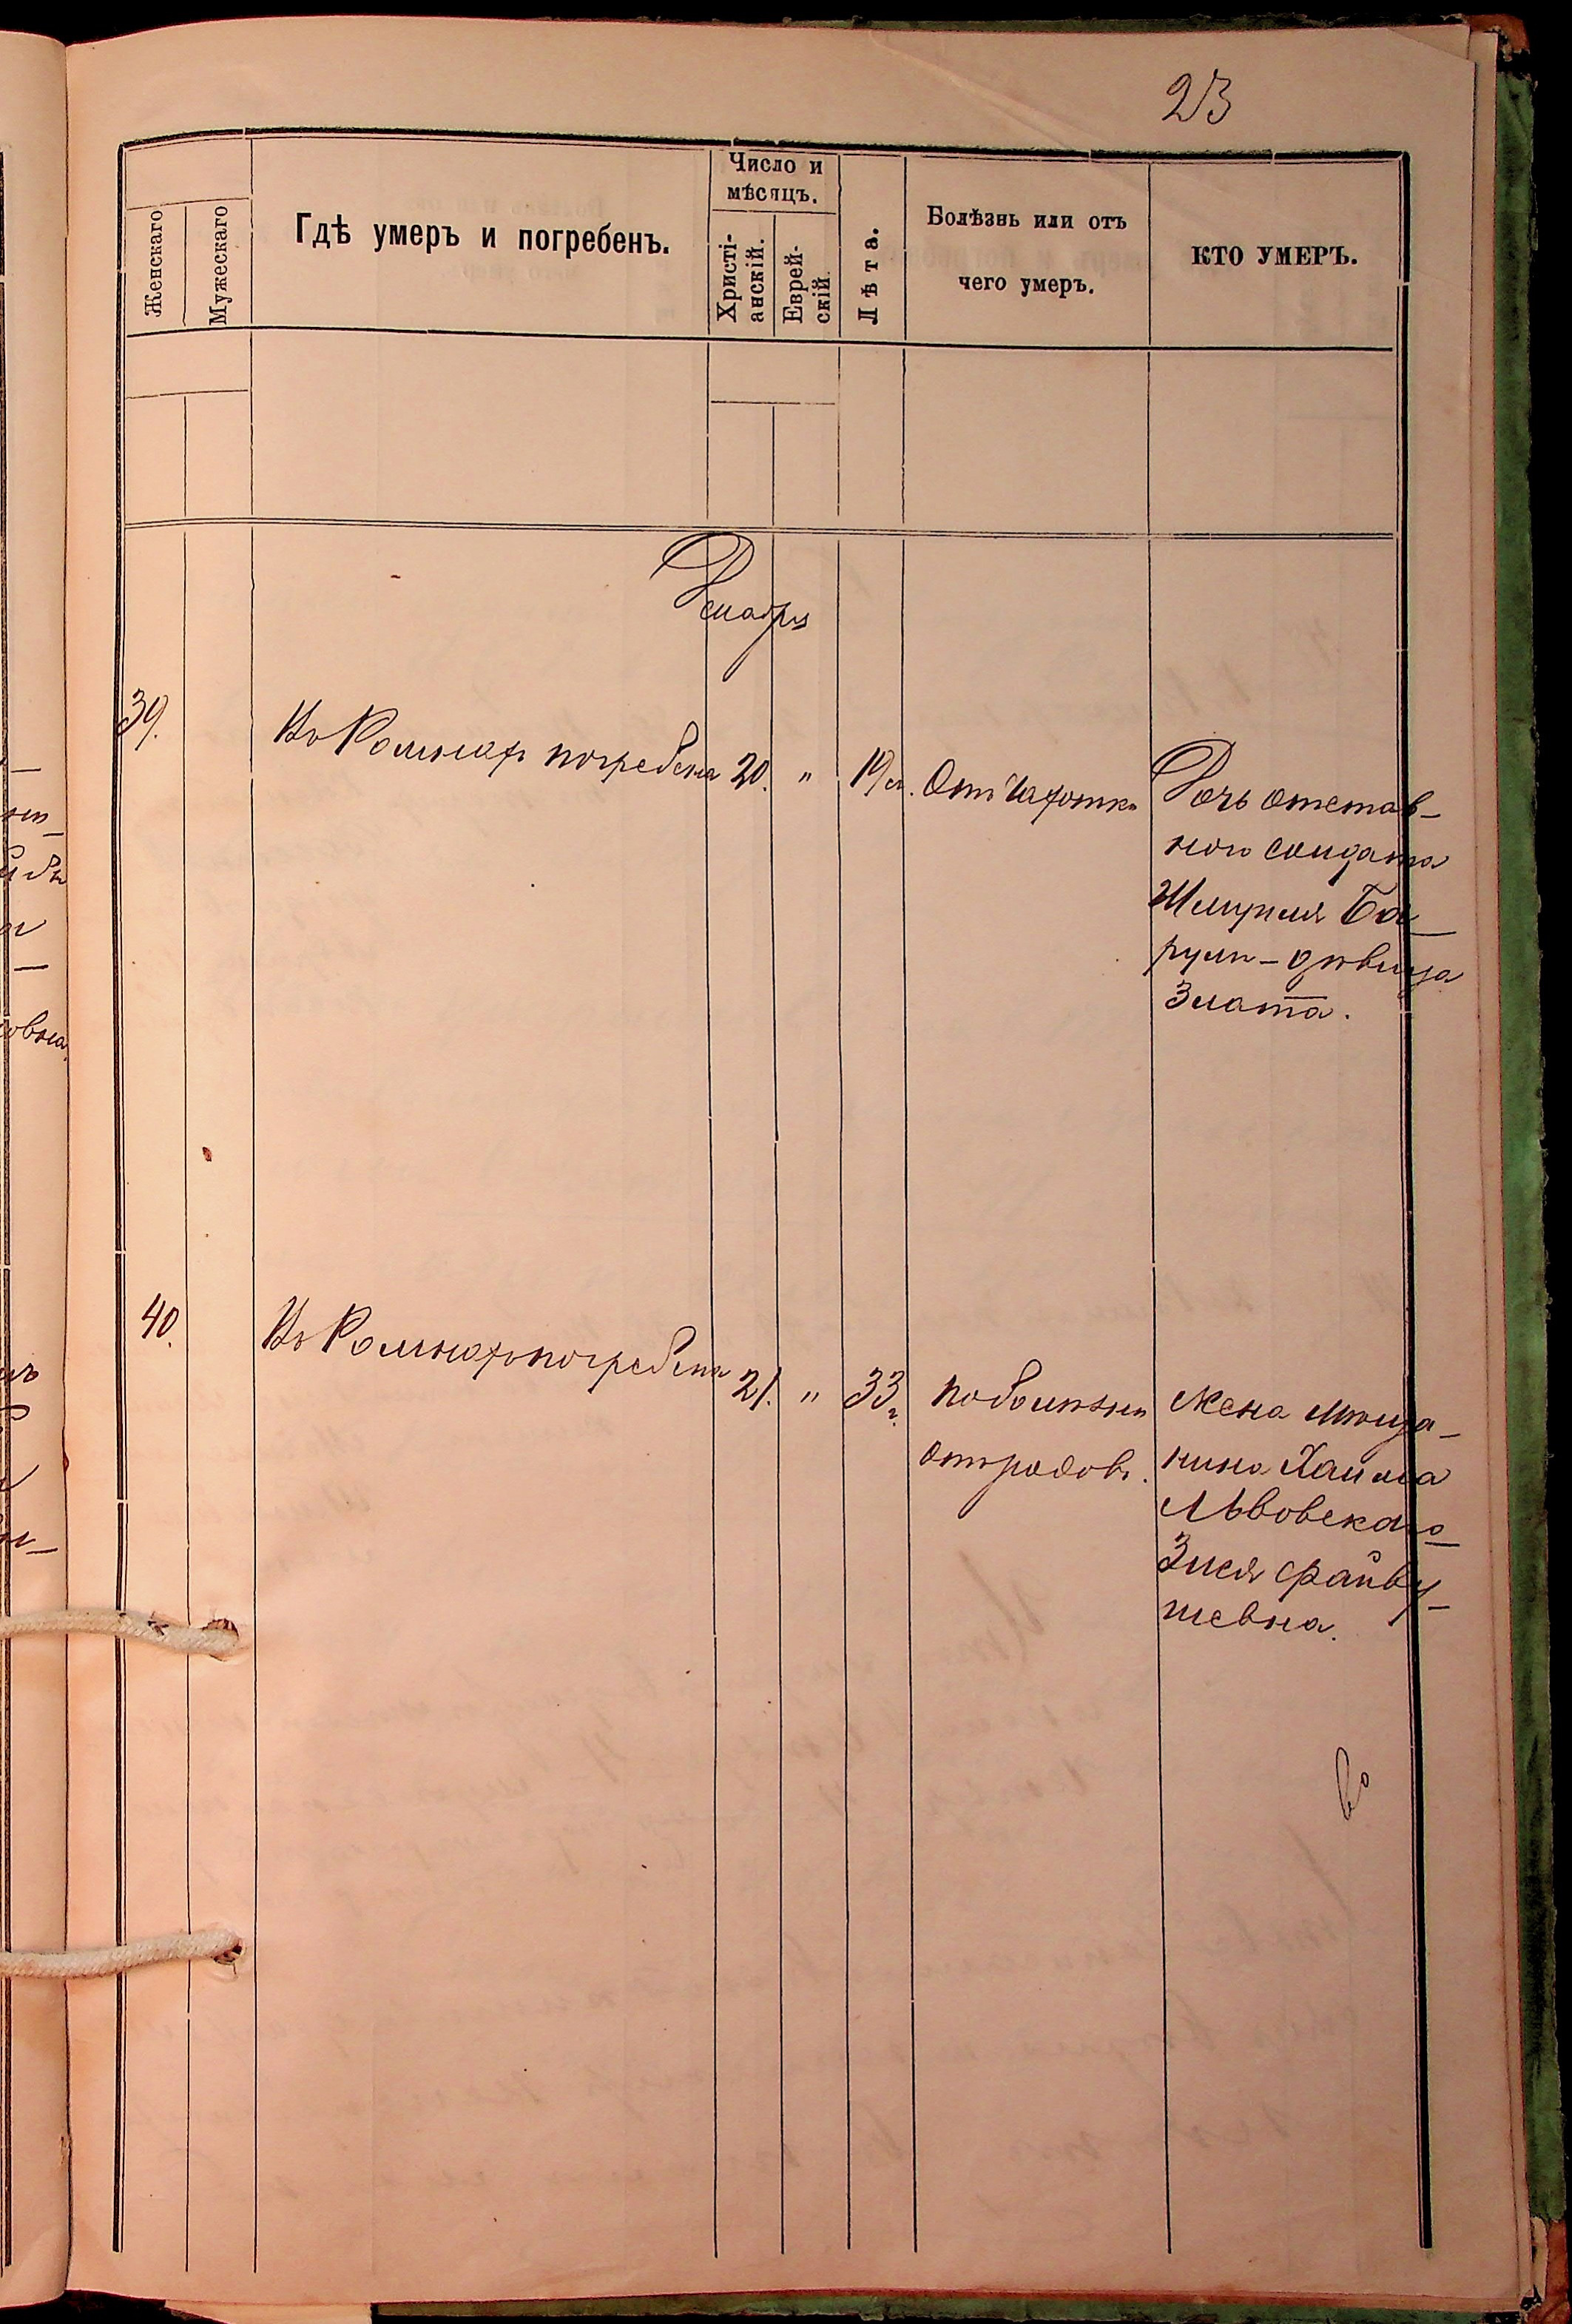 23
Женскаго
Мужескаго
Гдѣ умеръ и погребенъ.
Число и
мѣсяцъ.
Христі-
анскій.
Еврей-
скій.
Лѣта.
Болѣзнь или отъ
чего умеръ.
КТО УМЕРЪ.
Декабрь
39.
Въ Ромнахъ погребена
20.
"
19
Отъ Чахотки
Дочь отстав-
ного солдата
Шмуиля Ба-
рума - дѣвица
Злата.
40.
Въ Ромнахъ погребена
21.
"
33
г.
по болѣзни
отъ родовъ.
Жена мѣща-
нина Хаима
Львовскаго
Зися Файву-
шевна.